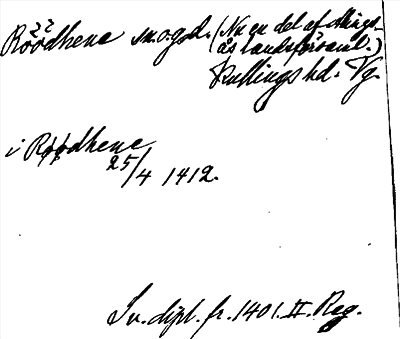 Röödhene sn. o. gd. (Nu en del af Alings-
ås landsförsaml.)
Kullings hd. Vg.
i Røødhene
25/4 1412.
Sv. dipl. fr. 1401. II. Reg.